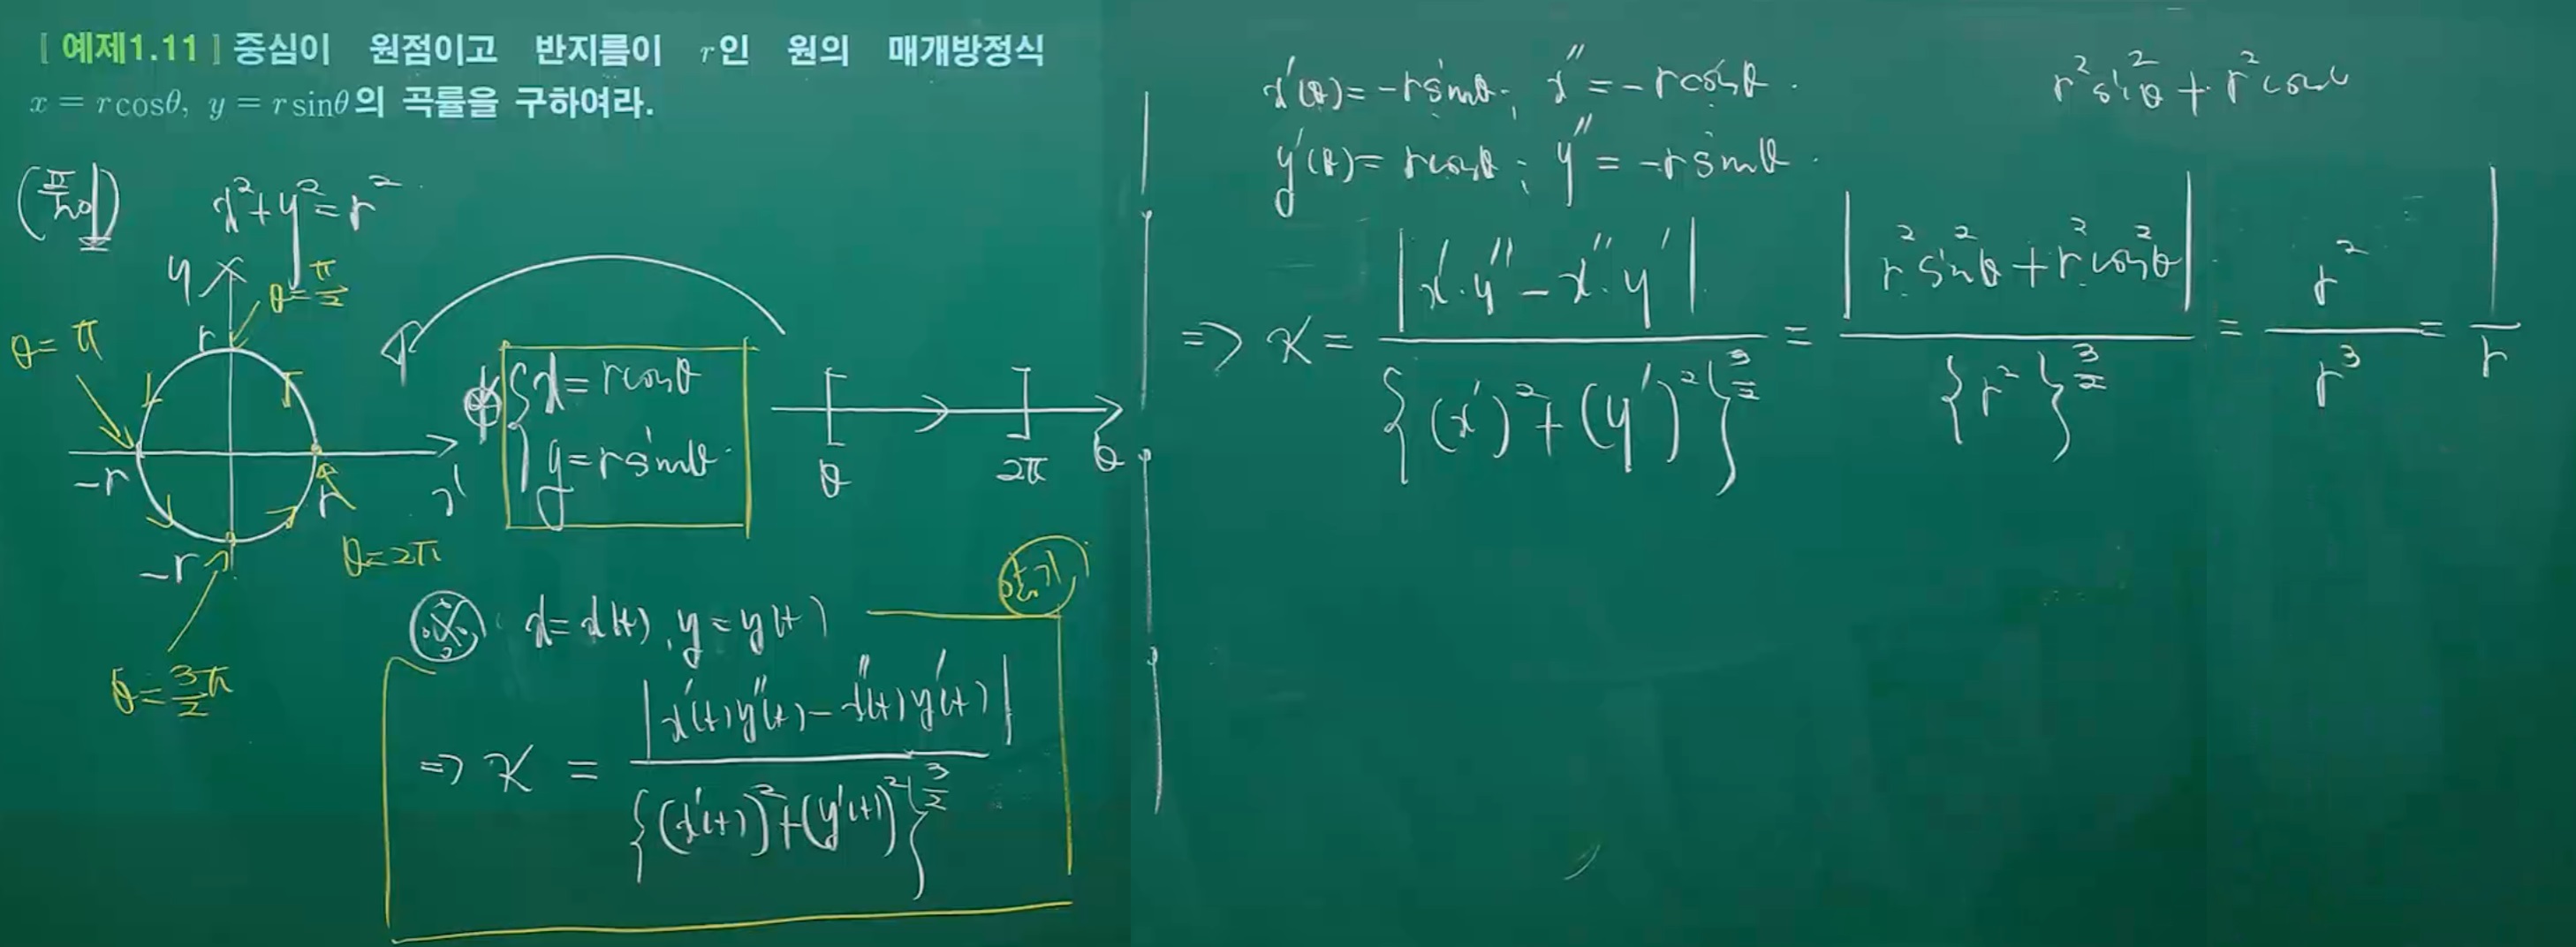 [예제1.11] 중심이 원점이고 반지름이 r인 원의 매개방정식
x = rcosθ, y = rsinθ의 곡률을 구하여라.
(풀이)
x²+y²=r²
y
θ=π/2
θ=π
r
-r
r
x
-r
θ=2π
θ=3/2π
{x=rcosθ
y=rsinθ
0
2π
θ
※ x=x(t), y=y(t)
암기
=> κ = |x'(t)y''(t)-x''(t)y'(t)| / {(x'(t))²+(y'(t))²}^(3/2)
x'(θ)=-rsinθ; x''=-rcosθ.
y'(θ)=rcosθ; y''=-rsinθ.
r²sin²θ+r²cos
=> κ = |x'·y''-x''·y'| / {(x')²+(y')²}^(3/2) = |r²sin²θ+r²cos²θ| / {r²}^(3/2) = r²/r³ = 1/r